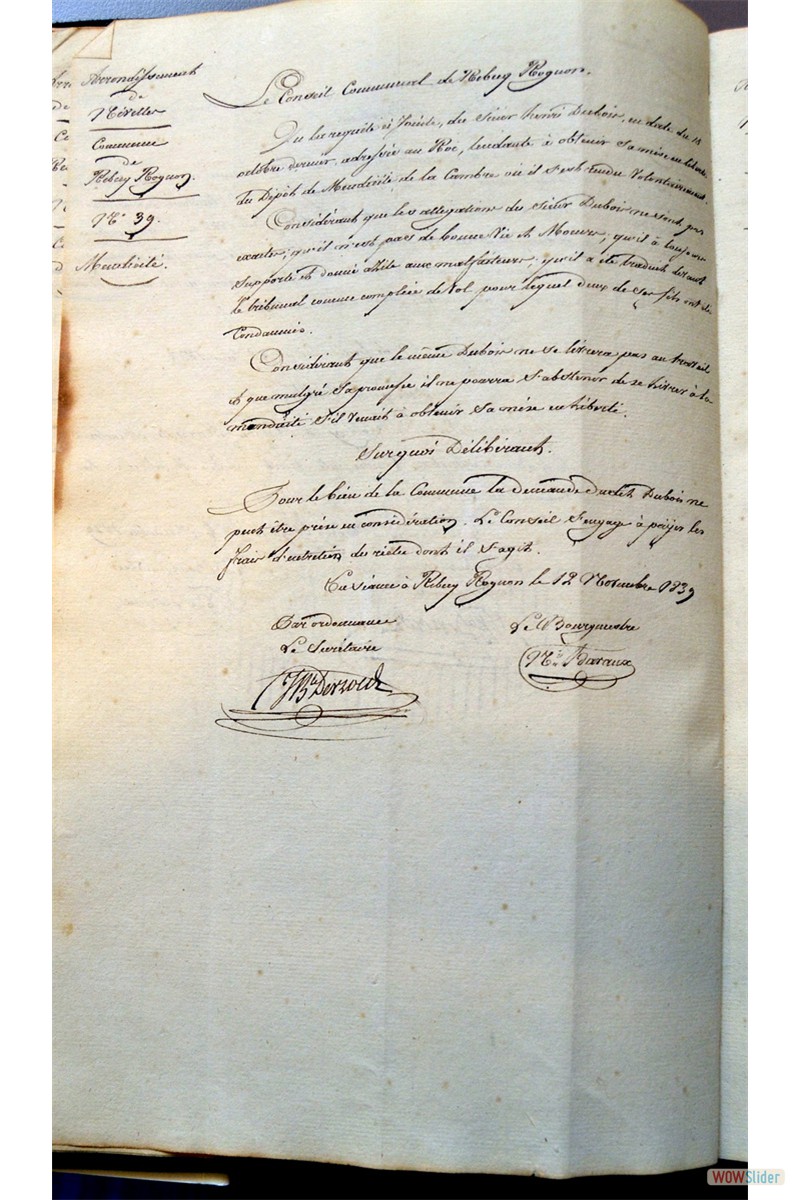 Arrondissement
de
Nivelles
Commune
de
Rebecq Rognon
N° 39.
Mendicité.
Le Conseil Communal de Rebecq Rognon.
Vu la requête ci jointe, du Sieur henri Dubois, en date du 18
octobre dernier, adressée au Roi, tendante à obtenir sa mise en liberté
du Dépôt de Mendicité de la Cambre où il s'est rendu Volontairement.
Considérant que les allegations du Sieur Dubois ne sont pas
exacte, qu'il n'est pas de bonne Vie et Moeurs, qu'il à toujours
supporté et donné asile aux malfaiteurs, qu'il a été traduit devant
le tribunal comme complice de Vol pour lequel deux de ses fils ont été
Condamnés.
Considérant que le même Dubois ne se livrera pas au travail
et que malgré sa promesse il ne pourra s'abstenir de se livrer à la
mendicité s'il venait à obtenir sa mise en liberté.
Sur quoi Délibérant.
Pour le bien de la Commune la demande dudit Dubois ne
peut être prise en considération. Le Conseil s'engage à payer les
frais d'entretien du reclu dont il s'agit.
En séance à Rebecq Rognon le 12 Novembre 1839
Par ordonnance
Le Secrétaire
Le Bourgmestre
WOWSlider